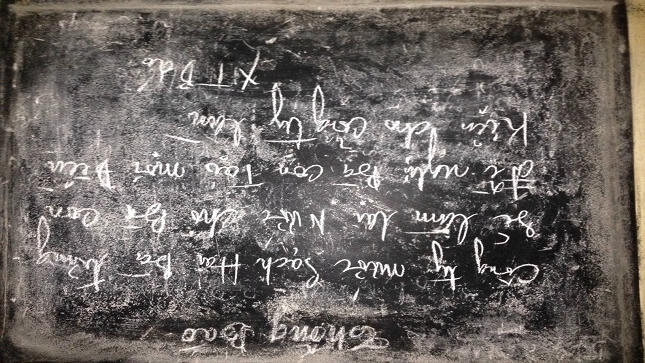 Thông Báo
Công ty nước Sạch Hai Bà Trưng
Sẽ làm lại Nước cho Bà con
Đề nghị Bà con Tạo mọi Điều
Kiện cho Công ty làm
XT Bắc